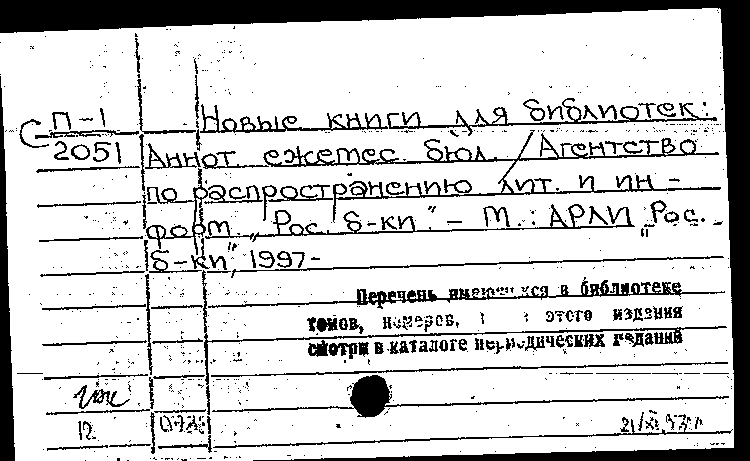 П-1 Новые книги для библиотек:
2051 Аннот. ежемес. бюл. / Агентство
по распространению лит. и ин-
форм. „Рос. б-ки". - М.: АРЛИ „Рос.
б-ки", 1997-
Перечень имеющихся в библиотеке
томов, номеров, этого издания
смотри в каталоге периодических изданий
12